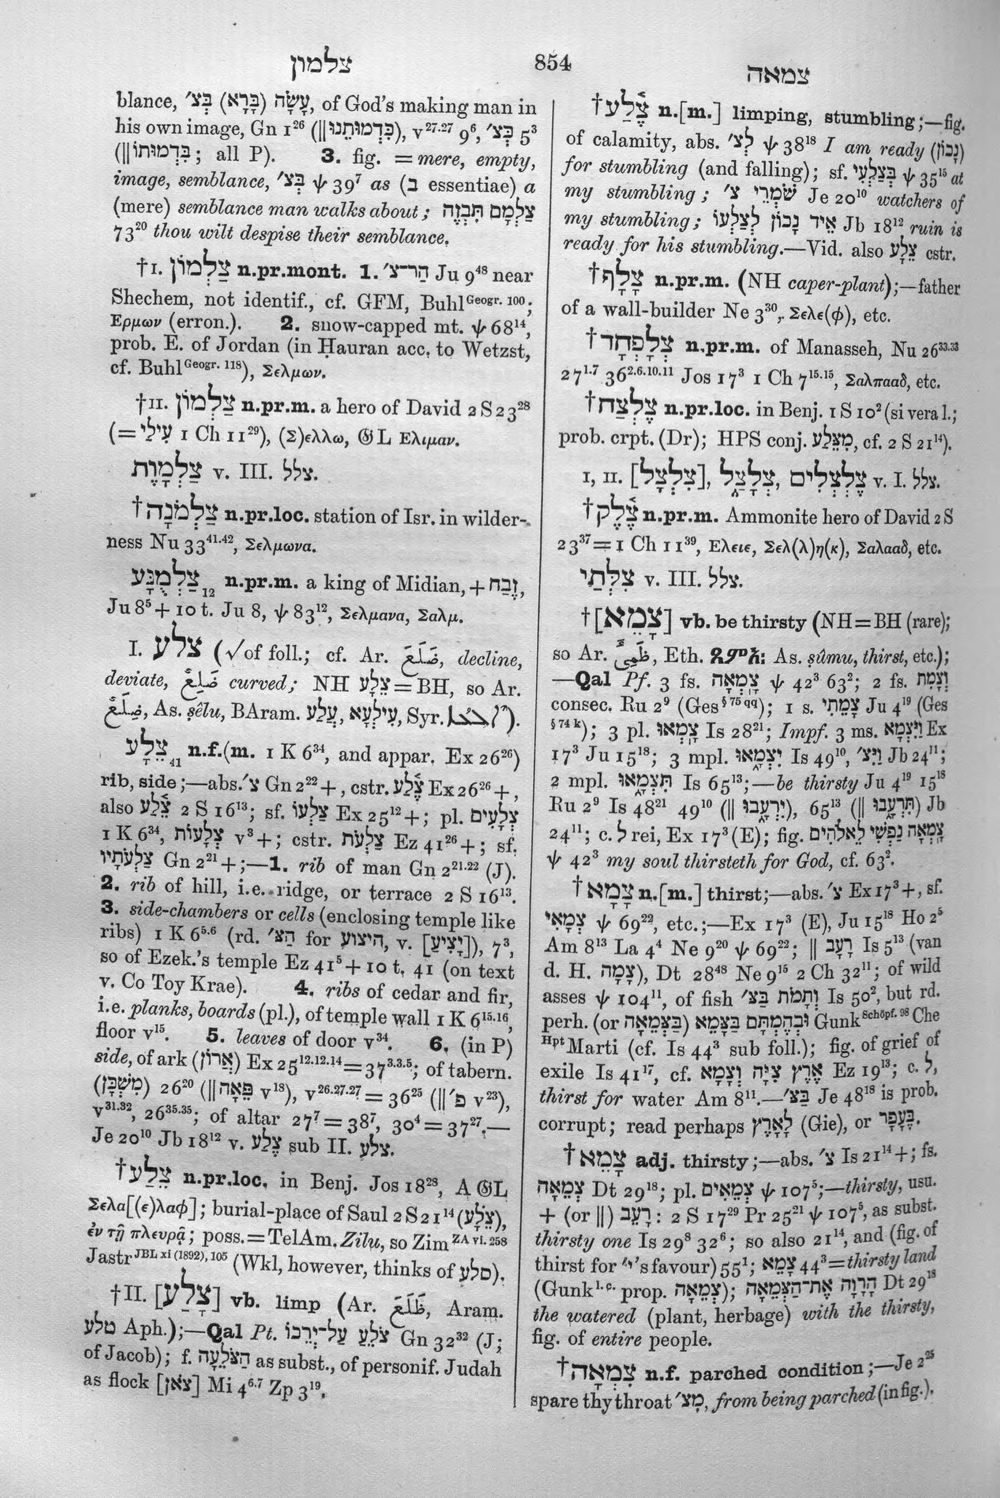 צלמון
854
צמאה
blance, עָשָׂה (בָּרָא) בְּצ׳, of God's making man in
his own image, Gn 1²⁶ (‖כִּדְמוּתֵנוּ), v²⁷·²⁷ 9⁶, בְּצ׳ 5³
(‖בִּדְמוּתוֹ; all P). 3. fig. = mere, empty,
image, semblance, בְּצ׳ ψ 39⁷ as (בְּ essentiae) a
(mere) semblance man walks about; צַלְמָם תִּבְזֶה
73²⁰ thou wilt despise their semblance.
†I. צַלְמוֹן n.pr.mont. 1. הַר־צ׳ Ju 9⁴⁸ near
Shechem, not identif., cf. GFM, Buhl Geogr. 100;
Ερμων (erron.). 2. snow-capped mt. ψ 68¹⁴,
prob. E. of Jordan (in Ḥauran acc. to Wetzst,
cf. Buhl Geogr. 118), Σελμων.
†II. צַלְמוֹן n.pr.m. a hero of David 2 S 23²⁸
(= עִילַי 1 Ch 11²⁹), (Σ)ελλω, 𝔊L Ελιμαν.
צַלְמָוֶת v. III. צלל.
†צַלְמֹנָה n.pr.loc. station of Isr. in wilder-
ness Nu 33⁴¹·⁴², Σελμωνα.
צַלְמֻנָּע₁₂ n.pr.m. a king of Midian, + זֶבַח,
Ju 8⁵ + 10 t. Ju 8, ψ 83¹², Σελμανα, Σαλμ.
I. צלע (√ of foll.; cf. Ar. ضَلَعَ, decline,
deviate, ضَلِعَ curved; NH צֵלָע = BH, so Ar.
ضِلَعٌ, As. ṣêlu, BAram. עֲלַע, עִילְעָא, Syr.).
צֵלָע₄₁ n.f.(m. 1 K 6³⁴, and appar. Ex 26²⁶)
rib, side;—abs. צ׳ Gn 2²² +, cstr. צֶלַע Ex 26²⁶ +,
also צֵלַע 2 S 16¹³; sf. צַלְעוֹ Ex 25¹² +; pl. צְלָעִים
1 K 6³⁴, צְלָעוֹת v³ +; cstr. צַלְעֹת Ez 41²⁶ +; sf.
צַלְעֹתָיו Gn 2²¹ +;—1. rib of man Gn 2²¹·²² (J).
2. rib of hill, i.e. ridge, or terrace 2 S 16¹³.
3. side-chambers or cells (enclosing temple like
ribs) 1 K 6⁵·⁶ (rd. הַצ׳ for היצוע, v. [יָצִיעַ]), 7³,
so of Ezek.'s temple Ez 41⁵ + 10 t. 41 (on text
v. Co Toy Krae). 4. ribs of cedar and fir,
i.e. planks, boards (pl.), of temple wall 1 K 6¹⁵·¹⁶,
floor v¹⁵. 5. leaves of door v³⁴. 6. (in P)
side, of ark (אֲרוֹן) Ex 25¹²·¹²·¹⁴ = 37³·³·⁵; of tabern.
(מִשְׁכָּן) 26²⁰ (‖פֵּאָה v¹⁸), v²⁶·²⁷·²⁷ = 36²⁵ (‖פ׳ v²³),
v³¹·³², 26³⁵·³⁵; of altar 27⁷ = 38⁷, 30⁴ = 37²⁷.—
Je 20¹⁰ Jb 18¹² v. צֶלַע sub II. צלע.
†צֵלַע n.pr.loc. in Benj. Jos 18²⁸, A 𝔊L
Σελα[(ε)λαφ]; burial-place of Saul 2 S 21¹⁴ (צֵלָע),
ἐν τῇ πλευρᾷ; poss. = TelAm. Zilu, so Zim ZA vi. 258
Jastr JBL xi (1892), 105 (Wkl, however, thinks of סלע).
†II. [צָלַע] vb. limp (Ar. ظَلَعَ, Aram.
טלע Aph.);—Qal Pt. צֹלֵעַ עַל־יְרֵכוֹ Gn 32³² (J;
of Jacob); f. הַצֹּלֵעָה as subst., of personif. Judah
as flock [צֹאן] Mi 4⁶·⁷ Zp 3¹⁹.
†צֶלַע n.[m.] limping, stumbling;—fig.
of calamity, abs. לְצ׳ ψ 38¹⁸ I am ready (נָכוֹן)
for stumbling (and falling); sf. בְּצַלְעִי ψ 35¹⁵ at
my stumbling; שֹׁמְרֵי צ׳ Je 20¹⁰ watchers of
my stumbling; אֵיד נָכוֹן לְצַלְעוֹ Jb 18¹² ruin is
ready for his stumbling.—Vid. also צֵלָע cstr.
†צָלָף n.pr.m. (NH caper-plant);—father
of a wall-builder Ne 3³⁰, Σελε(φ), etc.
†צְלָפְחָד n.pr.m. of Manasseh, Nu 26³³·³³
27¹·⁷ 36²·⁶·¹⁰·¹¹ Jos 17³ 1 Ch 7¹⁵·¹⁵, Σαλπααδ, etc.
†צֶלְצַח n.pr.loc. in Benj. 1 S 10² (si vera l.;
prob. crpt. (Dr); HPS conj. מִצֵּלַע, cf. 2 S 21¹⁴).
I, II. [צְלָצַל], צִלְצָל, צֶלְצְלִים v. I. צלל.
†צֶלֶק n.pr.m. Ammonite hero of David 2 S
23³⁷ = 1 Ch 11³⁹, Ελειε, Σελ(λ)η(κ), Σαλααδ, etc.
צִלְּתַי v. III. צלל.
†[צָמֵא] vb. be thirsty (NH = BH (rare);
so Ar. ظَمِئَ, Eth. ጸምአ፡ As. ṣûmu, thirst, etc.);
—Qal Pf. 3 fs. צָמְאָה ψ 42³ 63²; 2 fs. וְצָמִת
consec. Ru 2⁹ (Ges § 75 qq); 1 s. צָמֵתִי Ju 4¹⁹ (Ges
§ 74 k); 3 pl. צָמְאוּ Is 28²¹; Impf. 3 ms. וַיִּצְמָא Ex
17³ Ju 15¹⁸; 3 mpl. יִצְמָאוּ Is 49¹⁰, וַיִּצ׳ Jb 24¹¹;
2 mpl. תִּצְמָאוּ Is 65¹³;—be thirsty Ju 4¹⁹ 15¹⁸
Ru 2⁹ Is 48²¹ 49¹⁰ (‖ יִרְעָבוּ), 65¹³ (‖ תִּרְעָבוּ) Jb
24¹¹; c. לְ rei, Ex 17³ (E); fig. צָמְאָה נַפְשִׁי לֵאלֹהִים
ψ 42³ my soul thirsteth for God, cf. 63².
†צָמָא n.[m.] thirst;—abs. צ׳ Ex 17³ +, sf.
צְמָאִי ψ 69²², etc.;—Ex 17³ (E), Ju 15¹⁸ Ho 2⁵
Am 8¹³ La 4⁴ Ne 9²⁰ ψ 69²²; ‖ רָעָב Is 5¹³ (van
d. H. צָמָה), Dt 28⁴⁸ Ne 9¹⁵ 2 Ch 32¹¹; of wild
asses ψ 104¹¹, of fish וְתָמֹת בַּצ׳ Is 50², but rd.
perh. (or בַּצְּמָאָה) וּבְהֶמְתָּם בַּצָּמָא Gunk Schöpf. 98 Che
Hpt Marti (cf. Is 44³ sub foll.); fig. of grief of
exile Is 41¹⁷, cf. אֶרֶץ צִיָּה וְצָמָא Ez 19¹³; c. לְ,
thirst for water Am 8¹¹.—בַּצ׳ Je 48¹⁸ is prob.
corrupt; read perhaps לָאָרֶץ (Gie), or בֶּעָפָר.
†צָמֵא adj. thirsty;—abs. צ׳ Is 21¹⁴ +; fs.
צְמֵאָה Dt 29¹⁸; pl. צְמֵאִים ψ 107⁵;—thirsty, usu.
+ (or ‖) רָעֵב: 2 S 17²⁹ Pr 25²¹ ψ 107⁵, as subst.
thirsty one Is 29⁸ 32⁶; so also 21¹⁴, and (fig. of
thirst for ׳׳י's favour) 55¹; צָמֵא 44³ = thirsty land
(Gunk l.c. prop. צְמֵאָה); הָרָוָה אֶת־הַצְּמֵאָה Dt 29¹⁸
the watered (plant, herbage) with the thirsty,
fig. of entire people.
†צִמְאָה n.f. parched condition;—Je 2²⁵
spare thy throat מִצ׳, from being parched (in fig.).